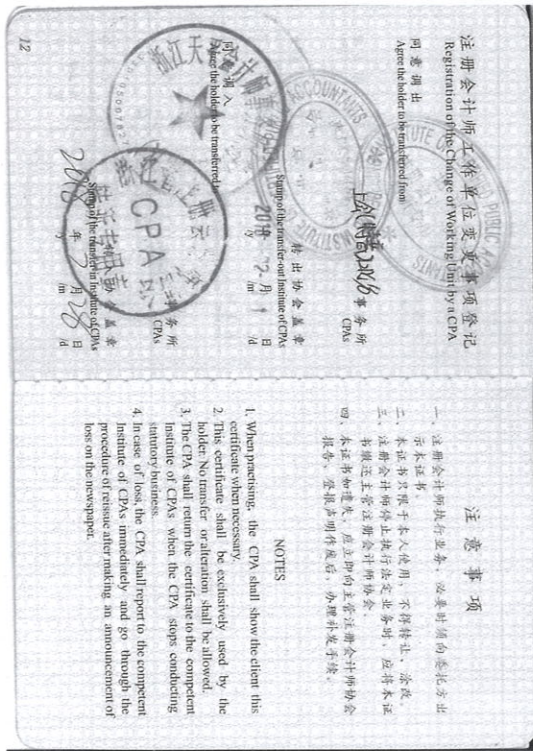 注册会计师工作单位变更事项登记
Registration of the Change of Working Unit by a CPA
同意调出
Agree the holder to be transferred from
事务所
CPAs
转出协会盖章
Stamp of the transfer-out Institute of CPAs
2018年2月1日
/y /m /d
同意调入
Agree the holder to be transferred to
事务所
CPAs
转入协会盖章
Stamp of the transfer-in Institute of CPAs
2018年2月28日
/y /m /d
12
注意事项
一、注册会计师执行业务，必要时须向委托方出
示本证书。
二、本证书只限于本人使用，不得转让、涂改。
三、注册会计师停止执行法定业务时，应将本证
书缴还主管注册会计师协会。
四、本证书如遗失，应立即向主管注册会计师协会
报告，登报声明作废后，办理补发手续。
NOTES
1. When practising, the CPA shall show the client this
certificate when necessary.
2. This certificate shall be exclusively used by the
holder. No transfer or alteration shall be allowed.
3. The CPA shall return the certificate to the competent
Institute of CPAs when the CPA stops conducting
statutory business.
4. In case of loss, the CPA shall report to the competent
Institute of CPAs immediately and go through the
procedure of reissue after making an announcement of
loss on the newspaper.